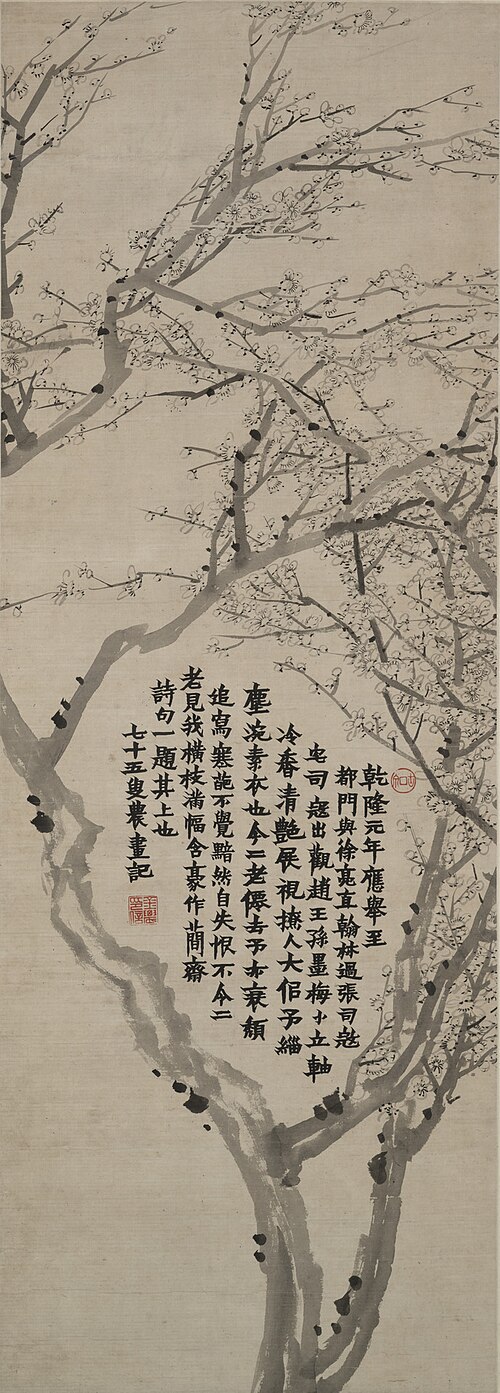 乾隆元年應舉至
都門與徐亮直翰林過張司寇
宅司寇出觀趙王孫墨梅小立軸
冷香清艷展視撩人大佀予緇
塵浣素衣也今二老僊去予亦衰頹
追寫寒葩不覺黯然自失恨不令二
老見我橫枝滿幅含豪作蕳齋
詩句一題其上也
七十五叟農畫記